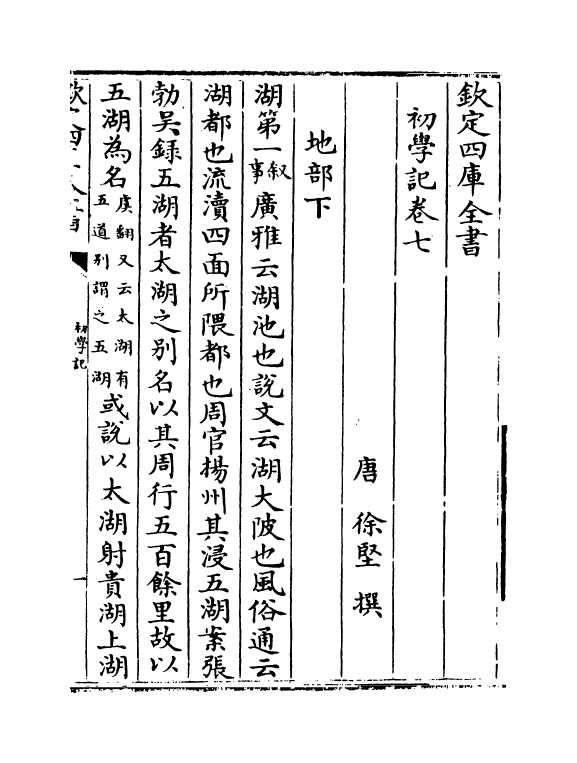 欽定四庫全書
初學記卷七
唐 徐堅 撰
地部下
湖第一叙事廣雅云湖池也說文云湖大陂也風俗通云
湖都也流瀆四面所隈都也周官揚州其浸五湖案張
勃吳錄五湖者太湖之别名以其周行五百餘里故以
五湖為名虞翻又云太湖有五道别謂之五湖或說以太湖射貴湖上湖
初學記
一